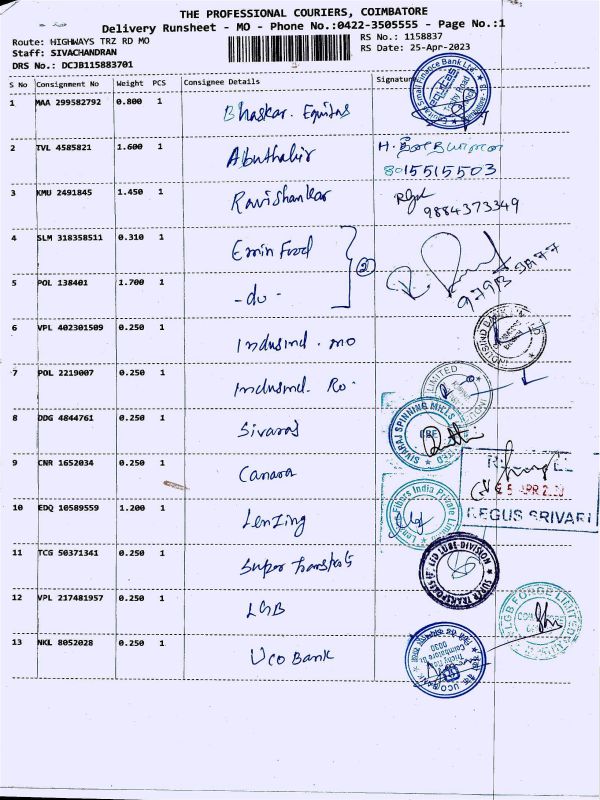 THE PROFESSIONAL COURIERS, COIMBATORE
Delivery Runsheet - MO - Phone No.:0422-3505555 - Page No.:1
Route: HIGHWAYS TRZ RD MO
RS No.: 1158837
Staff: SIVACHANDRAN
RS Date: 25-Apr-2023
DRS No.: DCJB115883701
S No Consignment No Weight PCS Consignee Details Signature
1 MAA 299582792 0.800 1 Bhaskar. Equitas
2 TVL 4585821 1.600 1 Abuthahir
8015515503
3 KMU 2491845 1.450 1 Ravishankar
9884373349
4 SLM 318358511 0.310 1 Emin Food
2
5 POL 138401 1.700 1 -do-
6 VPL 402301509 0.250 1 Indusind. MO
INDUSIND BANK
7 POL 2219007 0.250 1 Indusind. Ro.
LIMITED
8 DDG 4844761 0.250 1 Sivaraj
SIVARAJ SPINNING MILLS
9 CNR 1652034 0.250 1 Canara
10 EDQ 10589559 1.200 1 Lenzing
Fibers India Private
REGUS SRIVARI
11 TCG 50371341 0.250 1 Super Transports
SUPER TRANSPORTS (P) LTD LUBE-DIVISION
12 VPL 217481957 0.250 1 LGB
LGB FORGE LIMITED
13 NKL 8052028 0.250 1 UCO Bank
UCO BANK